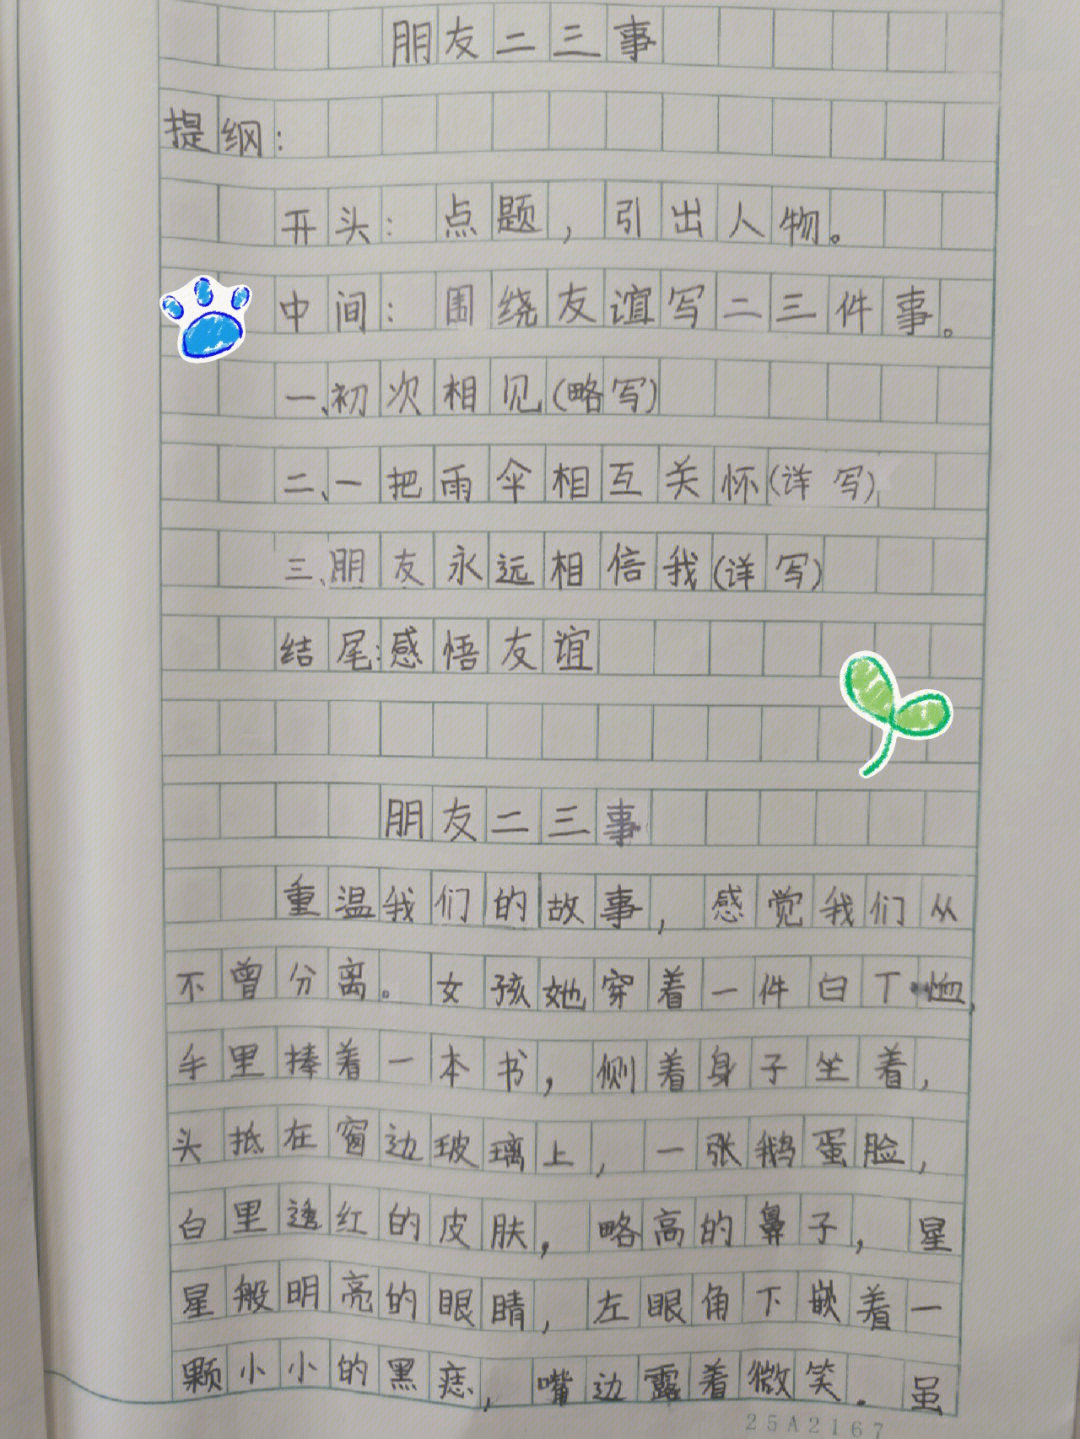 朋友二三事
提纲：
开头：点题，引出人物。
中间：围绕友谊写二三件事。
一、初次相见(略写)
二、一把雨伞相互关怀(详写)
三、朋友永远相信我(详写)
结尾：感悟友谊
朋友二三事
重温我们的故事，感觉我们从
不曾分离。女孩她穿着一件白T恤，
手里捧着一本书，侧着身子坐着，
头抵在窗边玻璃上，一张鹅蛋脸，
白里透红的皮肤，略高的鼻子，星
星般明亮的眼睛，左眼角下嵌着一
颗小小的黑痣，嘴边露着微笑．虽
25A2167